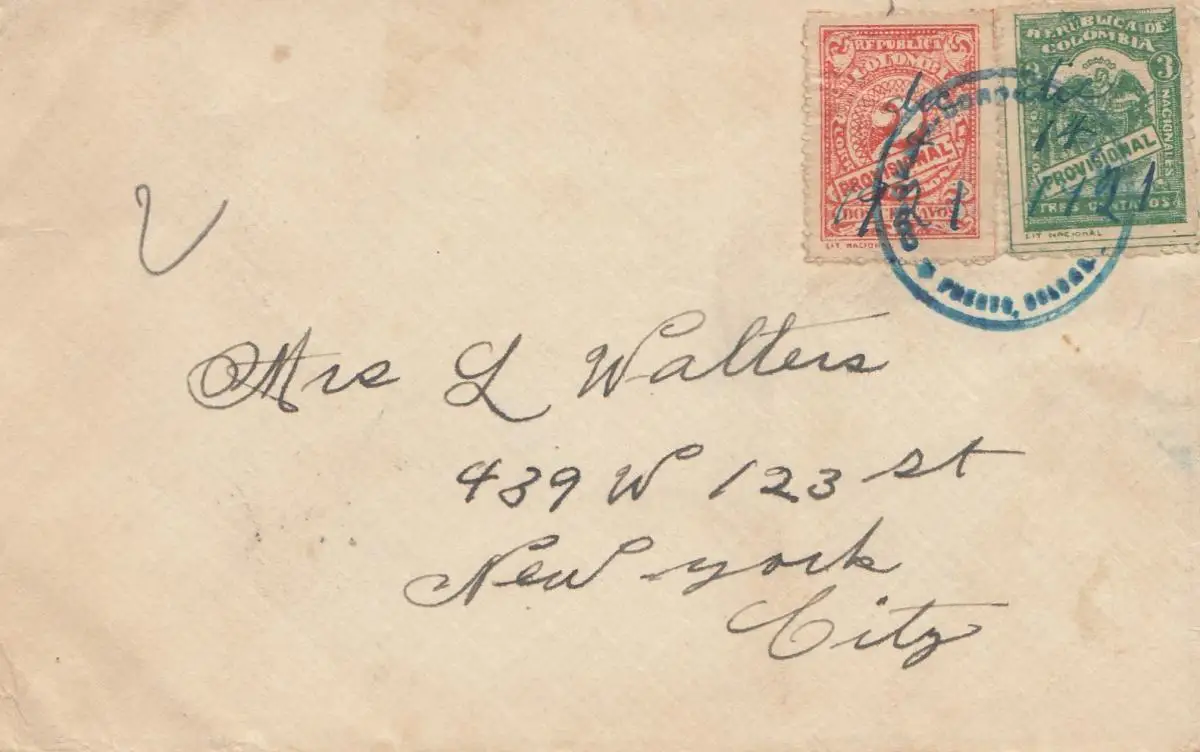 REPUBLICA
COLOMBIA
2
PROVISIONAL
DOS CENTAVOS
LIT. NACIONAL
REPUBLICA DE
COLOMBIA
3
NACIONALES
PROVISIONAL
TRES CENTAVOS
LIT. NACIONAL
14
1921
Mrs L Walters
439 W 123 st
New York
City